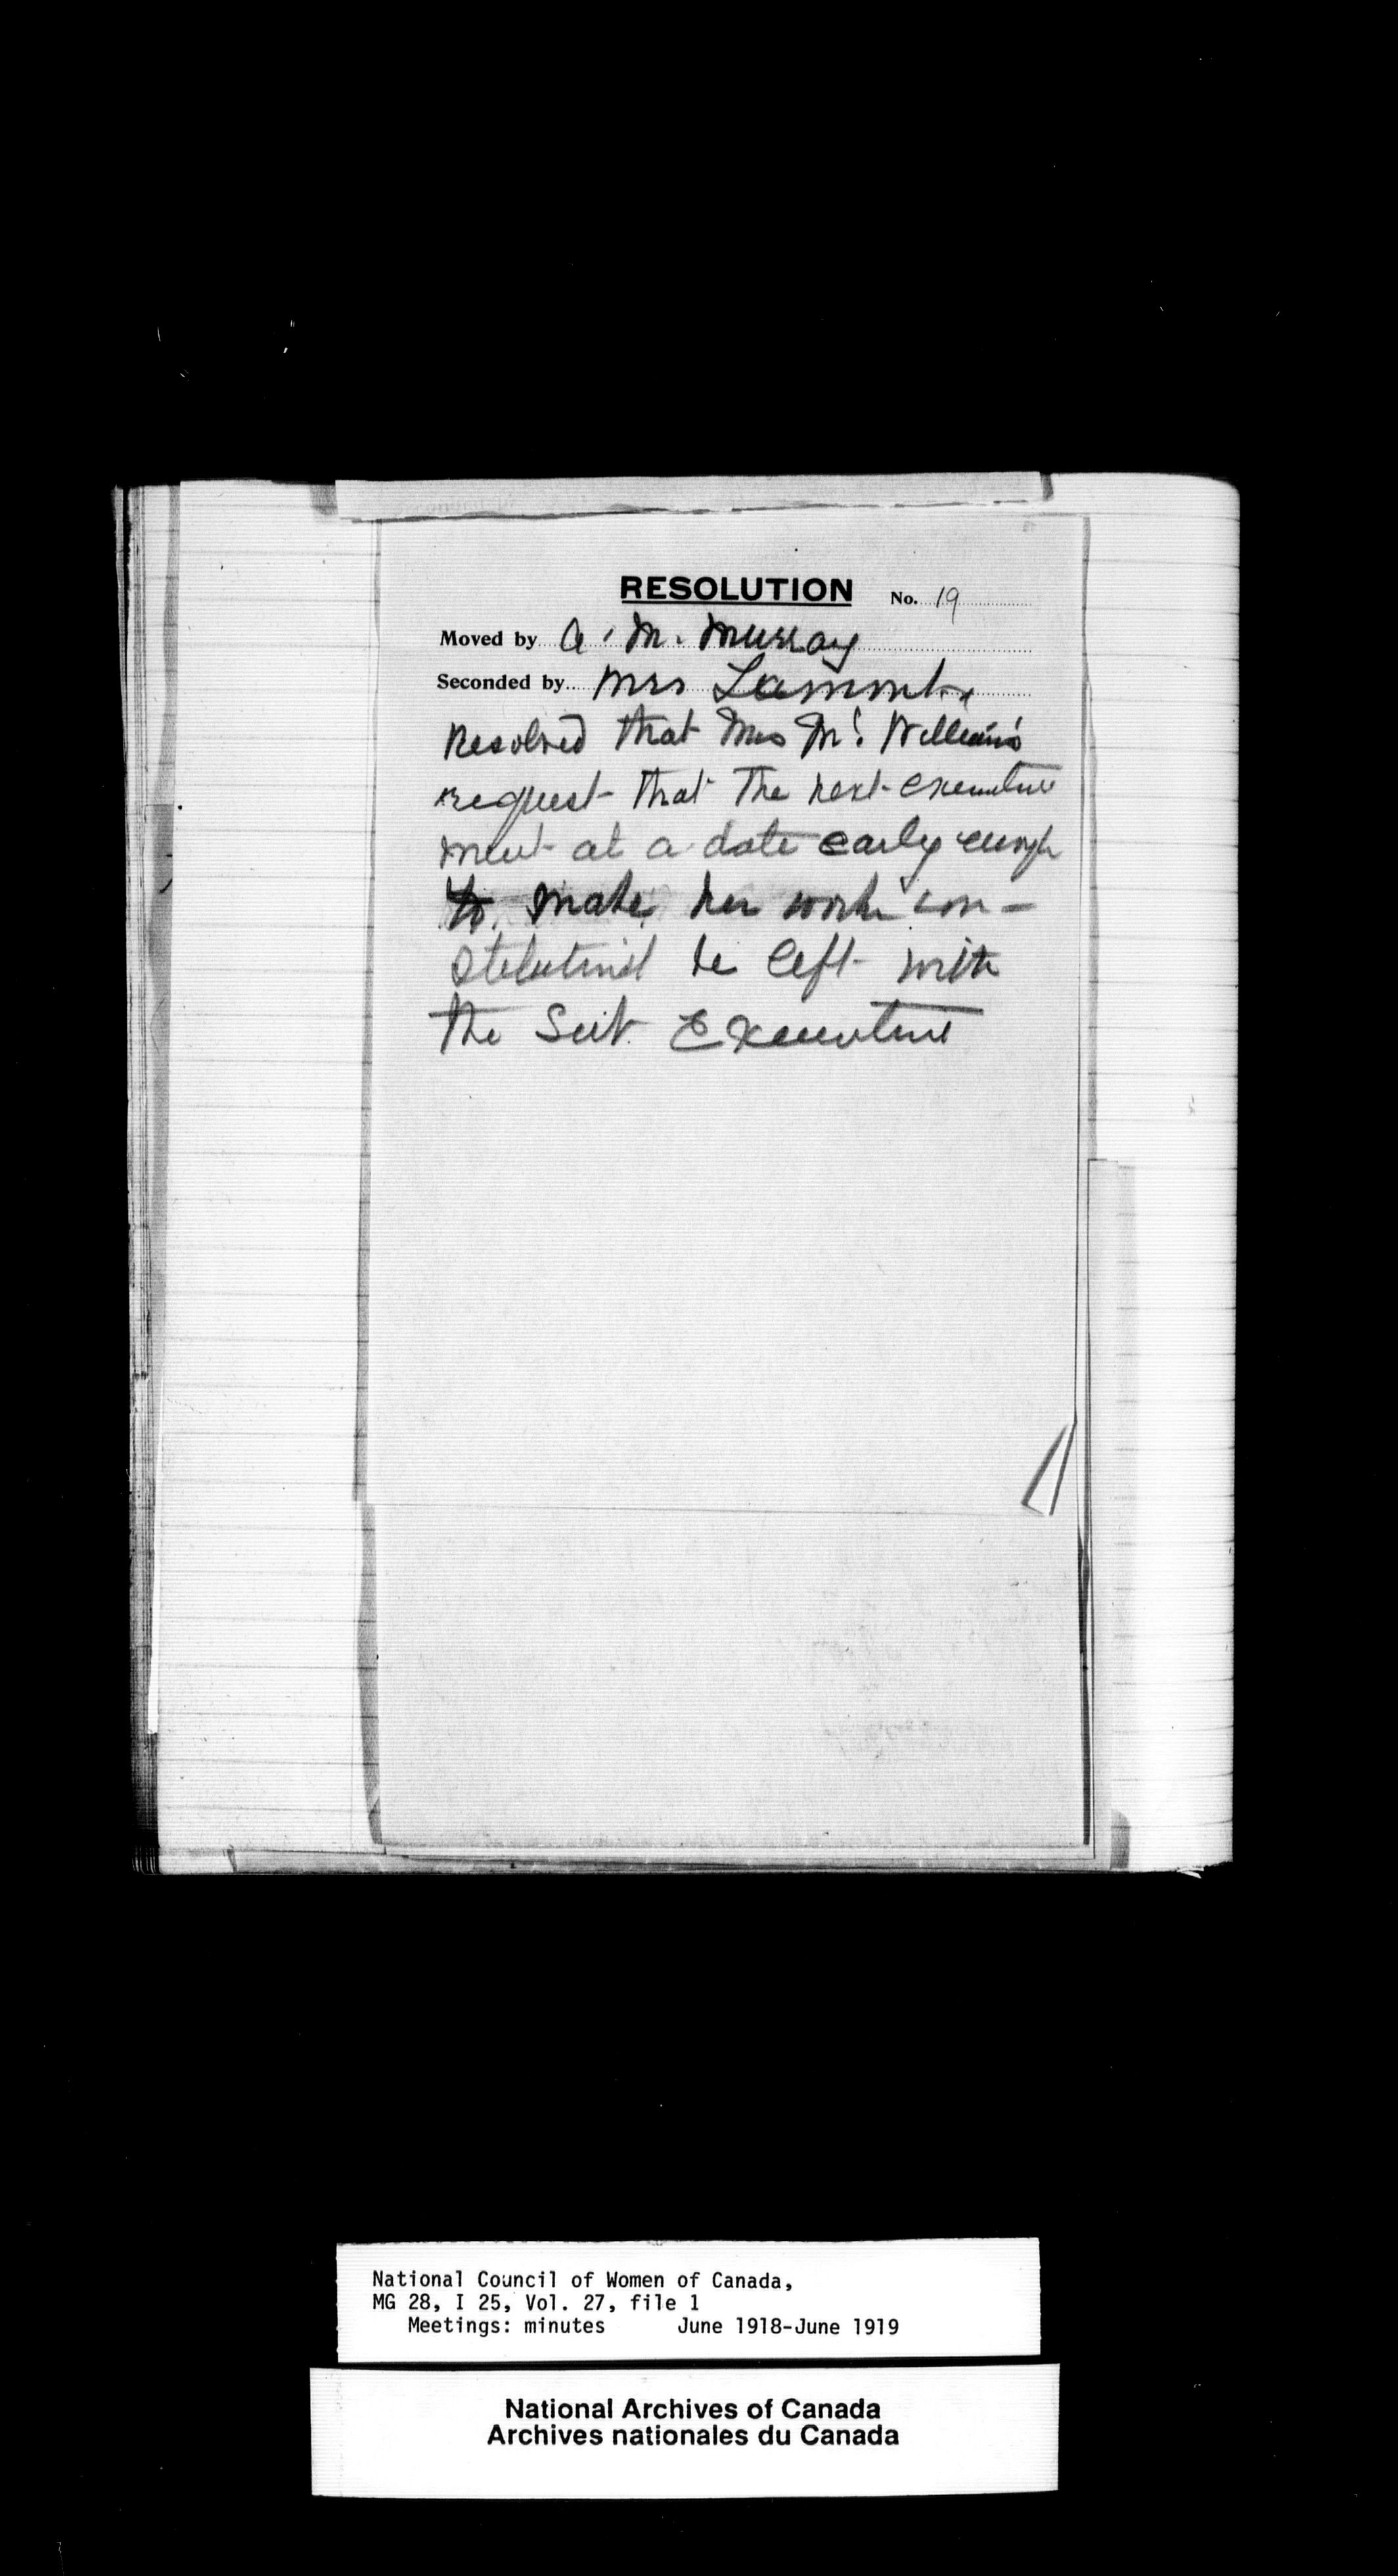 RESOLUTION No. 19
Moved by A. M. Murray
Seconded by Mrs Lamont
Resolved that Mrs Mc Williams
request that the next executive
meet at a date early enough
to make her work con-
stitutional be left with
the Executive
National Council of Women of Canada,
MG 28, I 25, Vol. 27, file 1
Meetings: minutes June 1918-June 1919
National Archives of Canada
Archives nationales du Canada